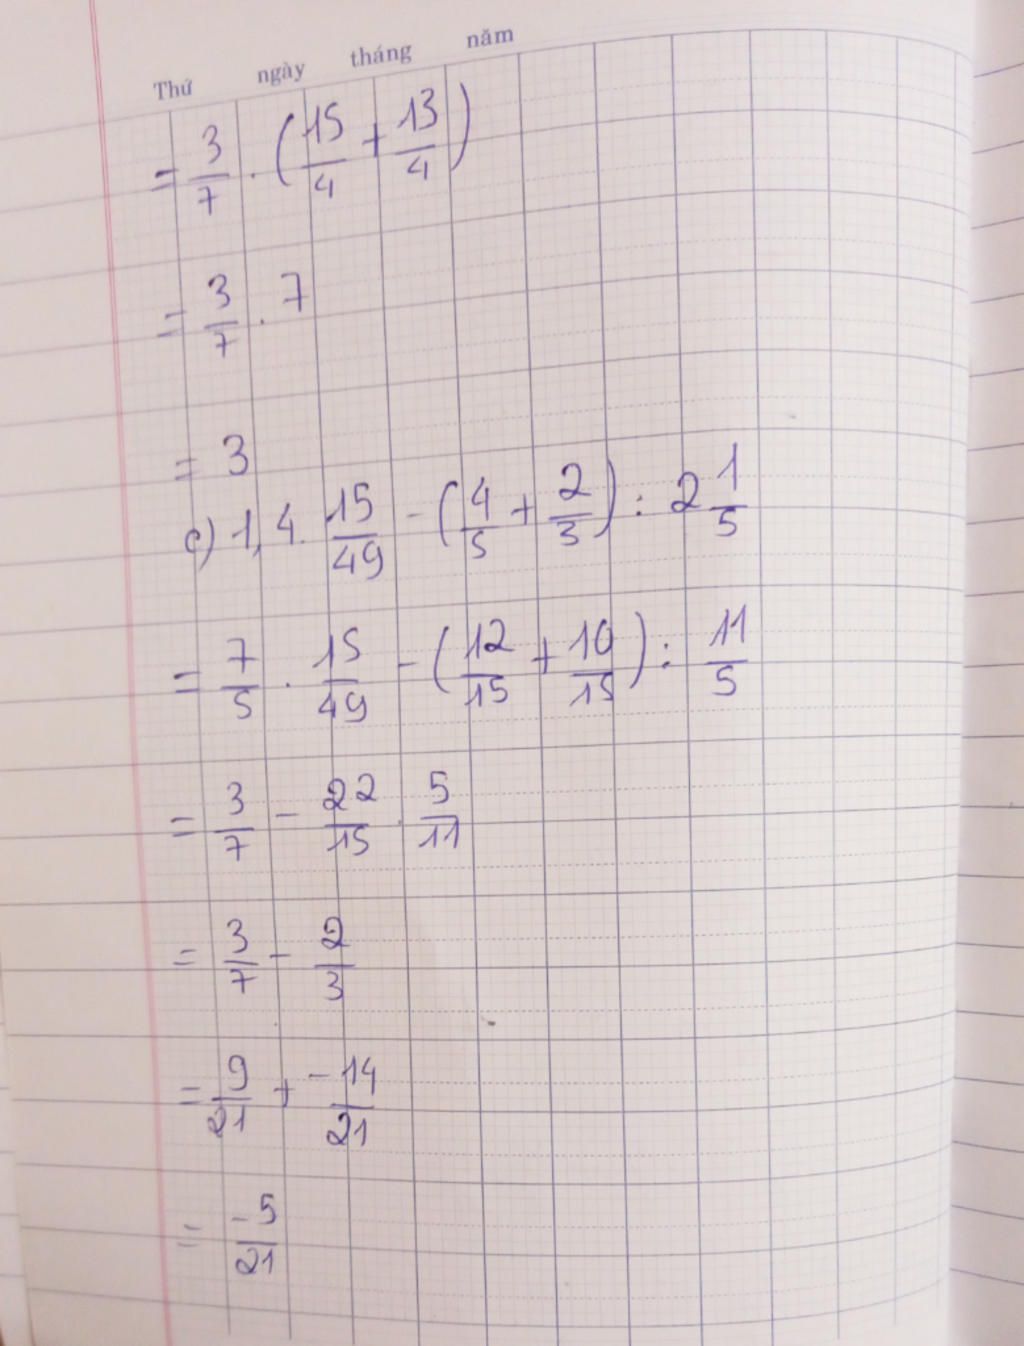 Thứ ngày tháng năm
= 3/7 . (15/4 + 13/4)
= 3/7 . 7
= 3
c) 1,4 . 15/49 - (4/5 + 2/3) : 2 1/5
= 7/5 . 15/49 - (12/15 + 10/15) : 11/5
= 3/7 - 22/15 . 5/11
= 3/7 - 2/3
= 9/21 + -14/21
= -5/21